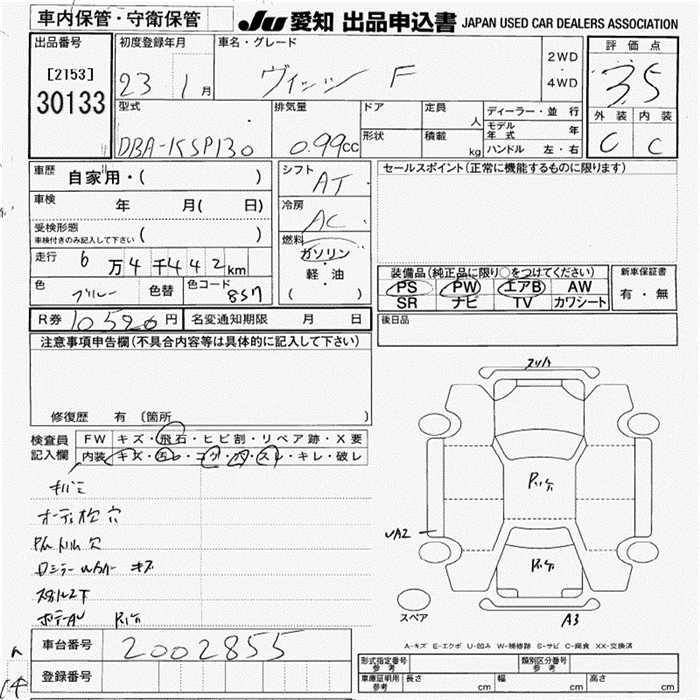 車内保管・守衛保管
JU 愛知 出品申込書 JAPAN USED CAR DEALERS ASSOCIATION
出品番号
[2153]
30133
初度登録年月
23 1 月
車名・グレード
ヴィッツ F
2WD
・
4WD
評価点
3.5
外装 内装
C C
型式
DBA-KSP130
排気量
0.99cc
ドア
形状
定員
人
積載
kg
ディーラー・並行
モデル年式 年
ハンドル 左・右
車歴
自家用・( )
車検
年 月( 日)
受検形態
車検付きのみ記入して下さい ( )
走行
6万4千442km
色
ブルー
色替
色コード
8S7
シフト
AT
冷房
AC
燃料
ガソリン
・
軽・油
( )
セールスポイント(正常に機能するものに限ります)
装備品(純正品に限り○をつけてください)
PS PW エアB AW
SR ナビ TV カワシート
新車保証書
有・無
R券 10520円
名変通知期限 月 日
後日品
注意事項申告欄(不具合内容等は具体的に記入して下さい)
修復歴 有 〔箇所 〕
検査員記入欄
FW キズ・飛石・ヒビ割・リペア跡・X要
内装 キズ・汚レ・コゲ・穴・スレ・キレ・破レ
キバミ
オーディオ左 穴
穴
キズ
スペア
UA2
A3
A-キズ E-エクボ U-凹み W-補修跡 S-サビ C-腐食 XX-交換済
車台番号
2002855
登録番号
型式指定番号 参考
類別区分番号 参考
車庫証明用 参考
長さ cm
幅 cm
高さ cm